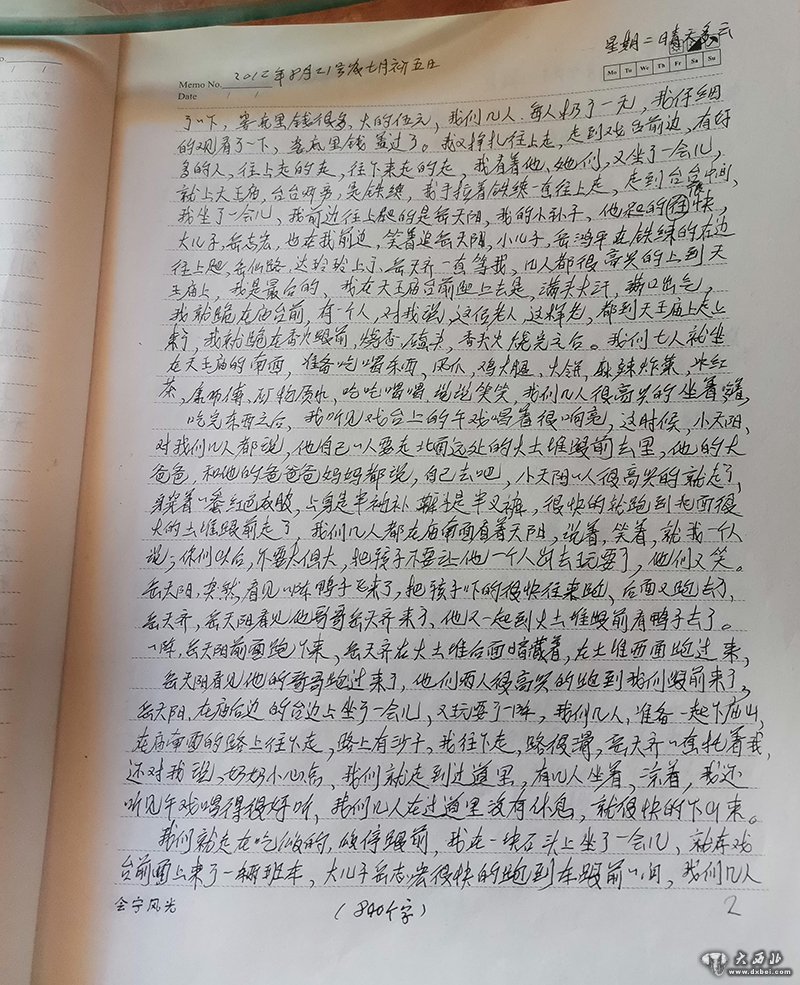 星期二 晴天多云
Memo No. 2012年8月21号农七月初五日
Date / /
Mo Tu We Th Fr Sa Su
了一下，香布里钱很多，大的伍元，我们几人，每人扔了一元，我仔细
的观看了一下，里钱盖过了。我又挣扎往上走，走到戏台前边，有好
多的人，往上走的走，往下来走的走，我看着他、她们，又坐了一会儿，
就上天王庙，台台两旁，是铁绳，我手拉着铁绳一直往上走，走到台台中间，
我坐了一会儿，我前边往上爬的是岳天阳，我的小孙子，他爬的很快，
大儿子，岳志宏，也在我前边，笑着追岳天阳，小儿子，岳鸿平在铁绳的左边
往上爬，岳仙路，达玲玲上了，岳天齐一直等我，几人都很高兴的上到天
王庙上，我是最后的、我在天王庙台前爬上去是，满头大汗，喘口出气，
我就跪在庙台前，有一个人，对我说，这位老人，这样老，都到天王庙上走上
来了，我就跪在香火跟前，烧香、磕头，香天火烧完之后。我们七人就坐
在天王庙的南面，准备吃喝东西，凤爪，鸡大腿，大饼，麻辣炸菜，冰红
茶，康师傅、矿物质水，吃吃喝喝，说说笑笑，我们几人很高兴的坐着，
吃完东西之后，我听见戏台上的午戏唱着很响亮，这时候，小天阳，
对我们几人都说，他自己一人要走北面远处的大土堆跟前去里，他的大
爸爸，和他的爸爸妈妈都说，自己去吧，小天阳一人很高兴的就走了，
身穿着一套红色衣服，上身是半袖衫，是半叉裤，很快的就跑到北面很
大的土堆跟前走了，我们几人都在庙南面看着天阳，说着，笑着，就我一个人
说；你们以后，不要太但大，把孩子不要让他一个人出去玩耍了，他们又笑。
岳天阳，突然，看见一阵鸭子飞来了，把孩子吓的很快往来跑，后面又跑去了，
岳天齐，岳天阳看见他哥哥岳天齐来了，他又一起到大土堆跟前看鸭子去了。
一阵，岳天阳前面跑下来，岳天齐在大土堆后面暗藏着，在土堆西面跑过来，
岳天阳看见他的哥哥跑过来了，他们两人很高兴的跑到我们跟前来了，
岳天阳，在庙后边的台边上坐了一会儿，又玩耍了一阵，我们几人，准备一起下庙山，
在庙南面的路上往下走，路上有沙子，我往下走，路很滑，岳天齐一直扶着我，
还对我说，好好小心点，我们就走到过道里，有几人坐着，凉着，我还
听见午戏唱得很好听，我们几人在过道里没有休息，就很快的下山来。
我们就走在吃饭的，跟前，我在一块石头上坐了一会儿，就在戏
台前面上来了一辆班车，大儿子岳志宏很快的跑到车跟前一问，我们几人
会宁风光
（840个字）
2
大西北
www.dxbei.com